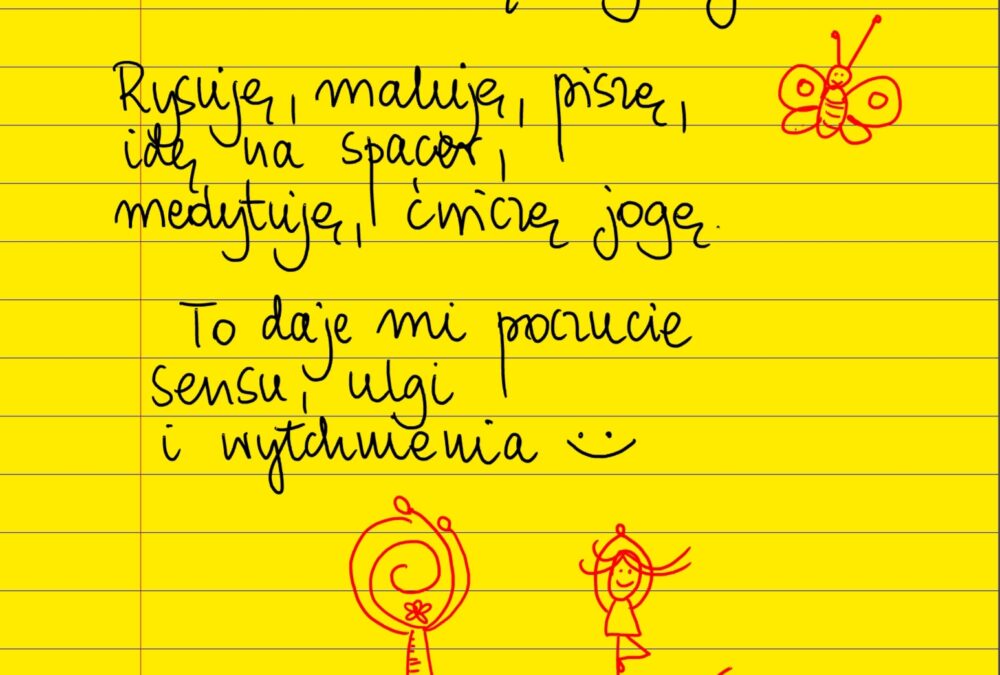 Rysuję, maluję, piszę,
idę na spacer,
medytuję, ćwiczę jogę.
To daje mi poczucie
sensu, ulgi
i wytchnienia